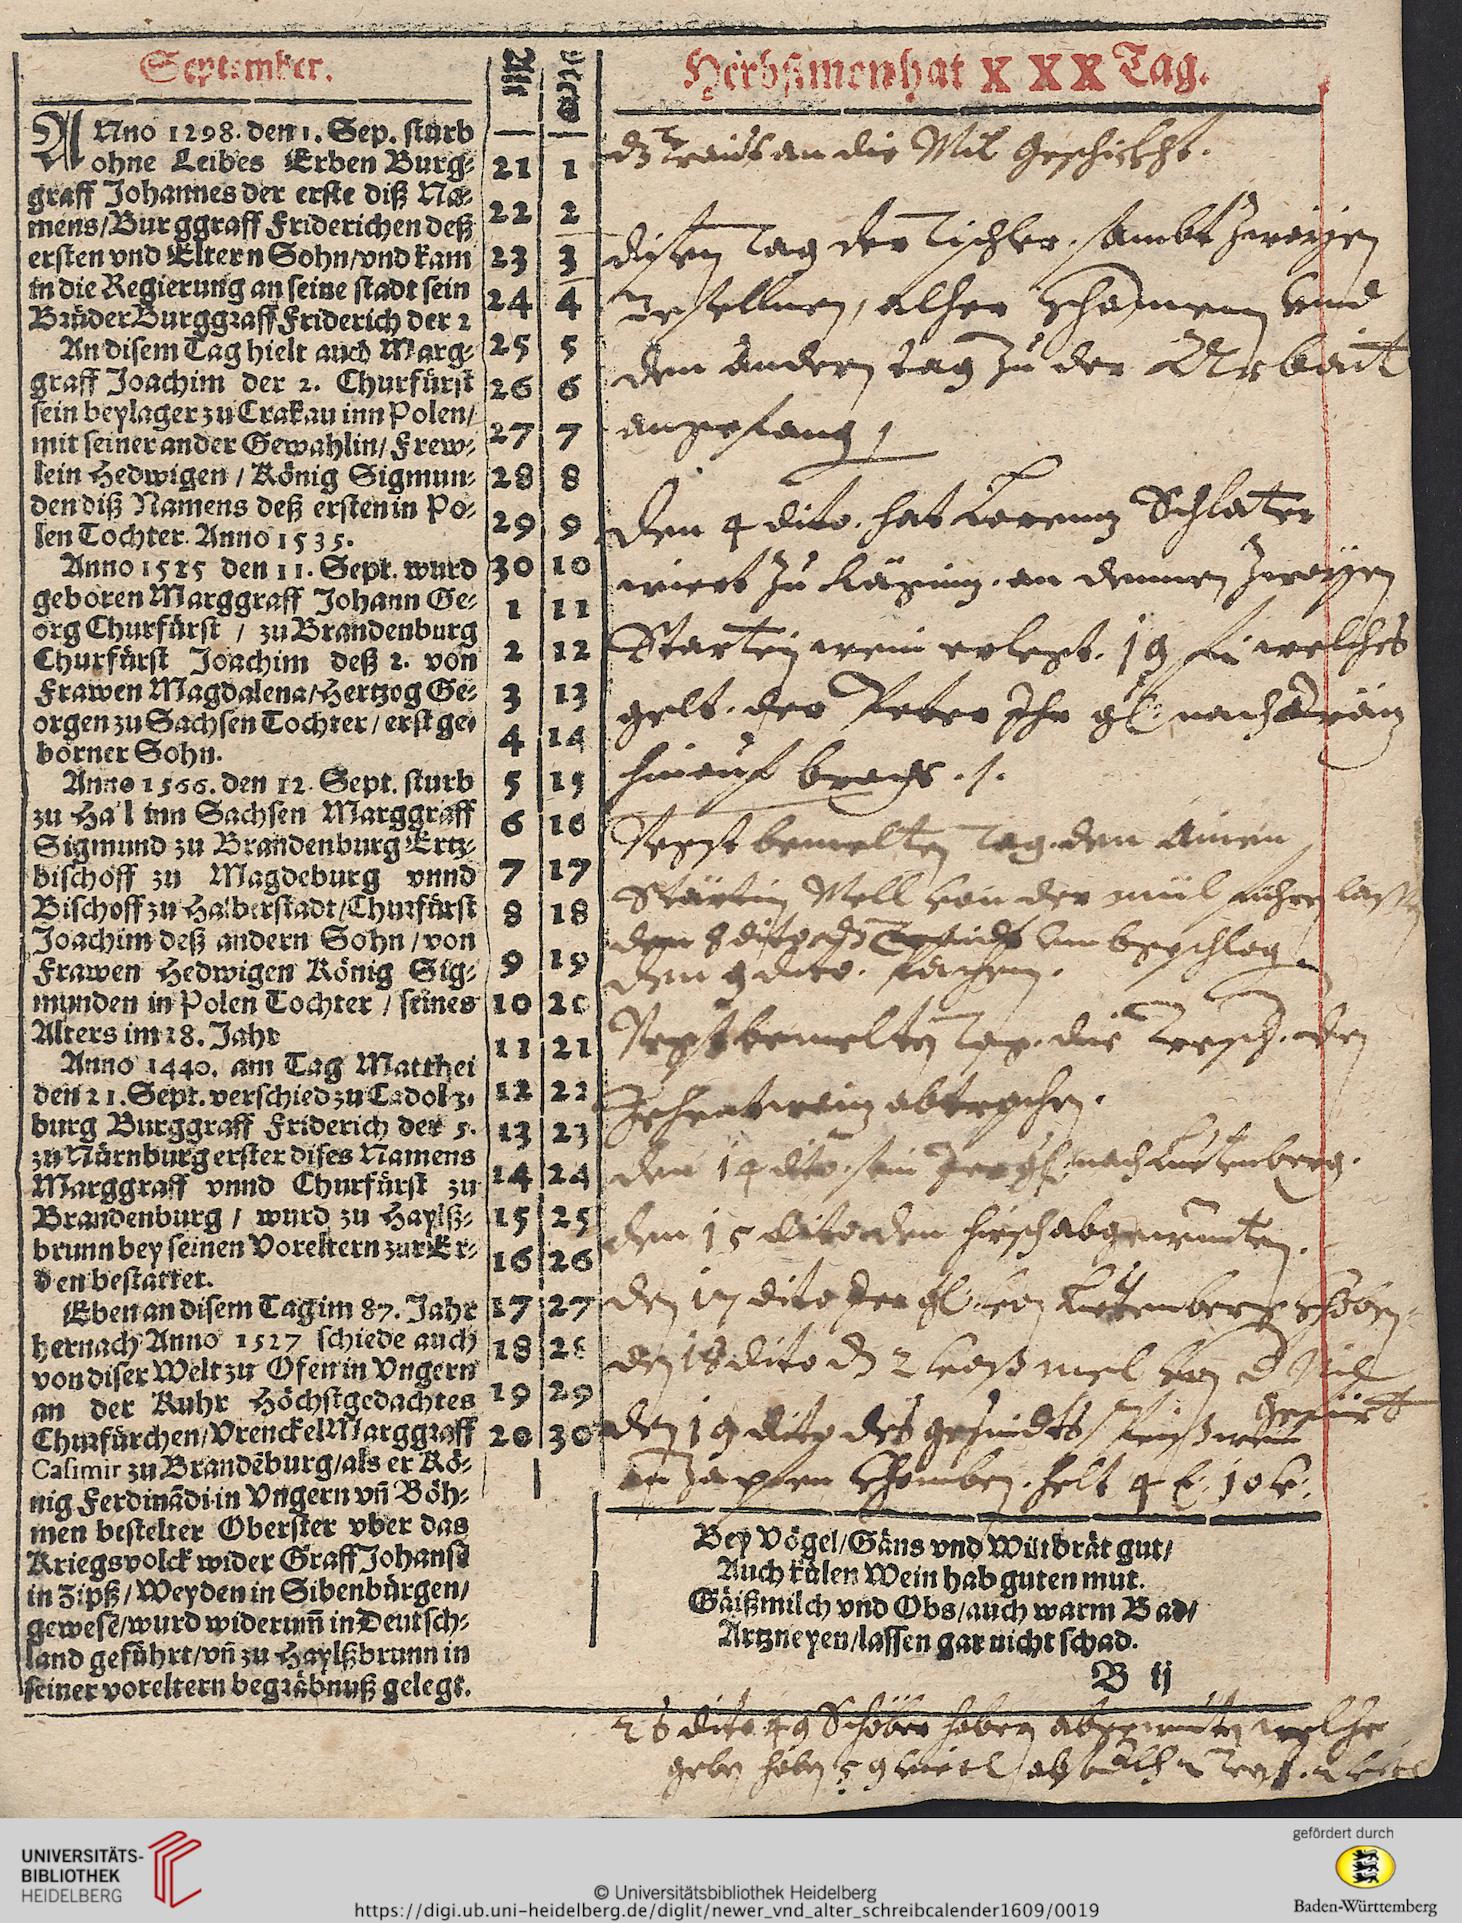 September.
ANno 1298. den 1. Sep. starb
ohne Leibes Erben Burg-
graff Johannes der erste diß Na-
mens/Burggraff Friderichen deß
ersten vnd Eltern Sohn/vnd kam
in die Regierung an seine stadt sein
Bruder Burggraff Friderich der 2
An disem Tag hielt auch Marg-
graff Joachim der 2. Churfürst
sein beylager zu Crakau inn Polen/
mit seiner ander Gewahlin/ Frew-
lein Hedwigen / König Sigmun-
den diß Namens deß ersten in Po-
len Tochter. Anno 1535.
Anno 1525 den 11. Sept. wurd
geboren Marggraff Johann Ge-
org Churfürst / zu Brandenburg
Churfürst Joachim deß 2. von
Frawen Magdalena/Hertzog Ge-
orgen zu Sachsen Tochter / erst ge-
borner Sohn.
Anno 1566. den 12. Sept. sturb
zu Hall inn Sachsen Marggraff
Sigmund zu Brandenburg Ertz-
bischoff zu Magdeburg vnnd
Bischoff zu Halberstadt/Churfürst
Joachim deß andern Sohn / von
Frawen Hedwigen König Sig-
munden in Polen Tochter / seines
Alters im 28. Jahr
Anno 1440. am Tag Matthei
den 21. Sept. verschied zu Cadoltz-
burg Burggraff Friderich der 5.
zu Nürnburg erster dises Namens
Marggraff vnnd Churfürst zu
Brandenburg / wurd zu Haylß-
brunn bey seinen Voreltern zur Er-
den bestattet.
Eben an disem Tag im 87. Jahr
hernach Anno 1527 schiede auch
von diser Welt zu Ofen in Vngern
an der Ruhr Höchstgedachtes
Churfürchen/Vrenckel Marggraff
Casimir zu Brandēburg/als er Kö-
nig Ferdinādi in Vngern vñ Böh-
men bestelter Oberster vber das
Kriegsvolck wider Graff Johansē
in Zipß/Weyden in Sibenbürgen/
gewesē/wurd widerumm̄ in Deutsch-
land geführt/vñ zu Haylßbrunn in
seiner voreltern begräbnuß gelegt.
21 1
22 2
23 3
24 4
25 5
26 6
27 7
28 8
29 9
30 10
1 11
2 12
3 13
4 14
5 15
6 16
7 17
8 18
9 19
10 20
11 21
12 22
13 23
14 24
15 25
16 26
17 27
18 28
19 29
20 30
Herbstmon hat XXX Tag.
an die Mil geschickht.
disen Tag der Tischler sambt zwayen
Gesellnen, alher khommen vnd
dem andern tag zu der Arbait
angefang
Den 4 dito. hat Lorenz Schlater
wiert zu an zwayen
Startin wein erlegt. 19 welches
gelt. der Peter Ihr gl: nach
hinauf bracht.
bemelten Tag. den Ainen
Startin Mell von der mül führen lassen
den 8 dito
den 9 dito.
bemelten Tag. die den
abtragen.
den 14 dito. sein Ihr gl: nach Lutenberg.
den 15 dito den hirsch
den 17 dito Ihr gl: von Lutenberg khomen
den 18 dito 2 mel von d Mil
gefürt
den 19 dito des gesindts Speiß wein
an zapfen khomben. helt 4
Bey Vögel/Gäns vnd Wiltbrät gut/
Auch külen Wein hab guten mut.
Gäißmilch vnd Obs/auch warm Bad/
Artzneyen/lassen gar nicht schad.
B ij
26 dito 49 Schöber haben welche
geben haben 59 viertl
UNIVERSITÄTS-
BIBLIOTHEK
HEIDELBERG
© Universitätsbibliothek Heidelberg
https://digi.ub.uni-heidelberg.de/diglit/newer_vnd_alter_schreibcalender1609/0019
gefördert durch
Baden-Württemberg